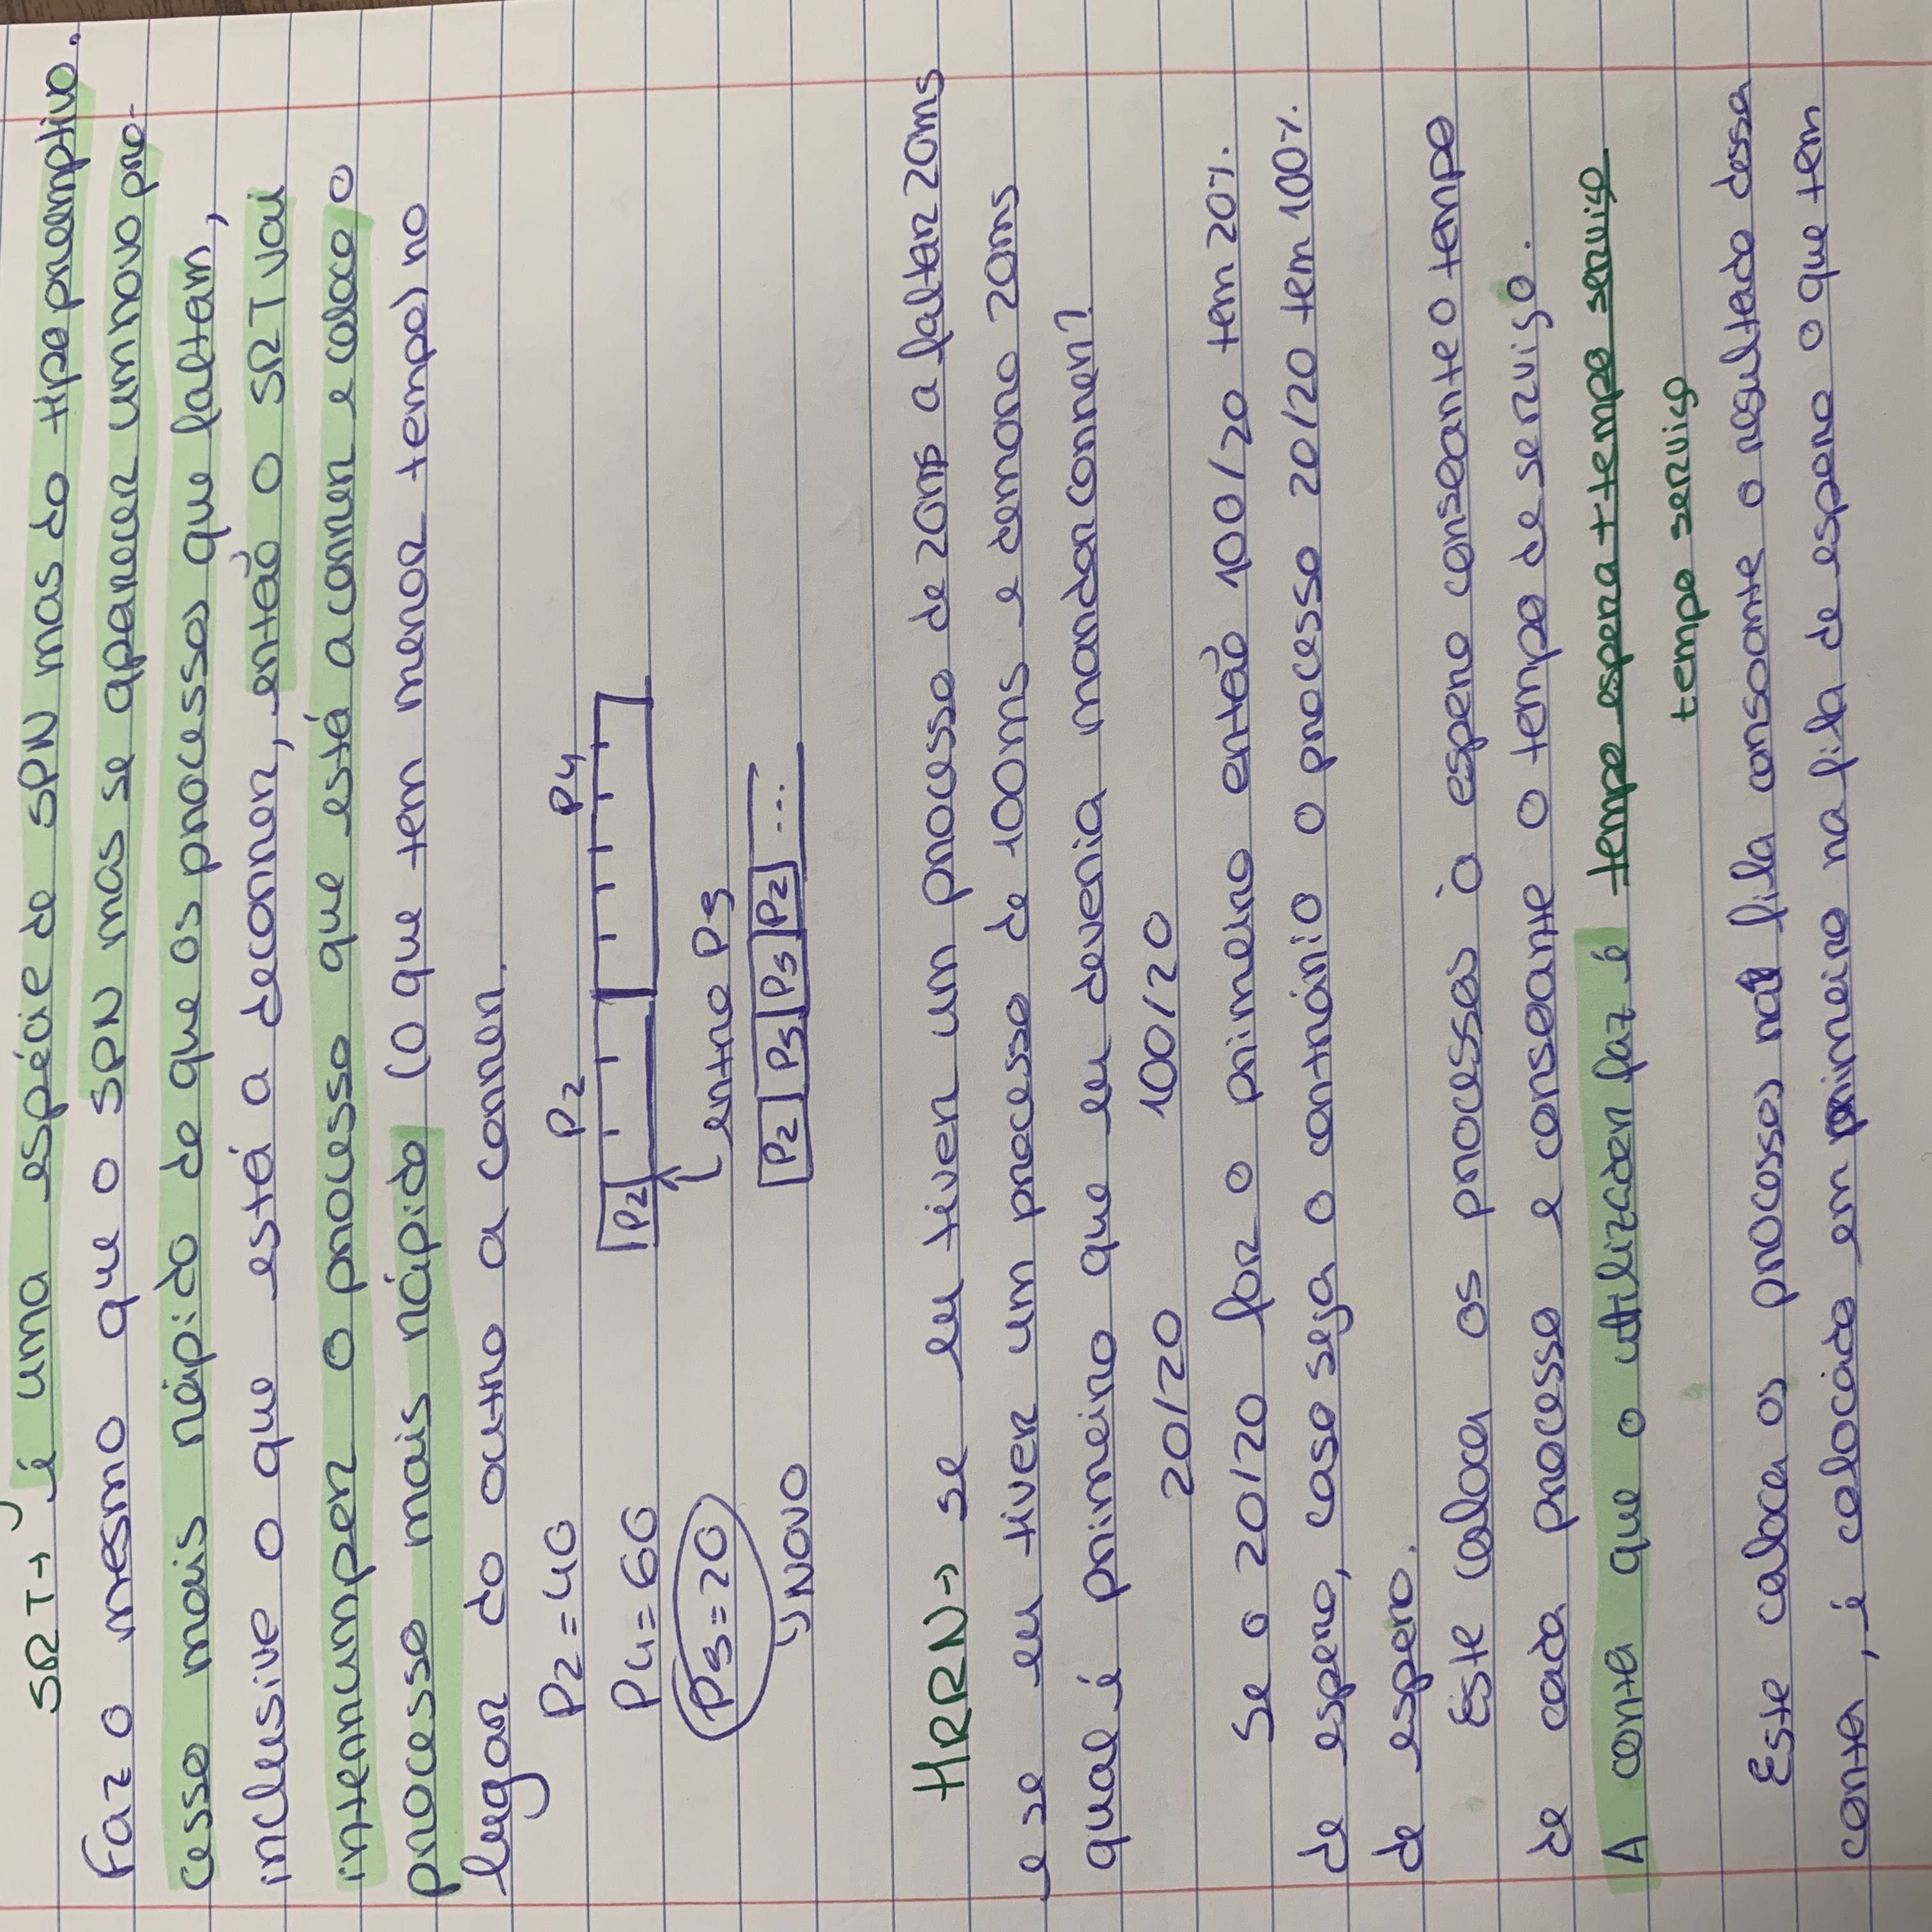 SRT→ é uma espécie de SPN mas do tipo preemptivo.
Faz o mesmo que o SPN mas se aparecer um novo pro-
cesso mais rápido do que os processos que faltam,
inclusive o que está a decorrer, então o SRT vai
interrumper o processo que está a correr e coloca o
processo mais rápido (o que tem menor tempo) no
lugar do outro a correr.
P2=40 P2 P4
P4=60 P2
P5=20 entra P5
↳NOVO P2 P5 P5 P2 ...
HRRN→ se eu tiver um processo de 20ms a faltar 20ms
e se eu tiver um processo de 100ms e demora 20ms
qual é primeiro que eu deveria mandar correr?
20/20 100/20
Se o 20/20 for o primeiro então 100/20 tem 20%
de espera, caso seja o contrário o processo 20/20 tem 100%
de espera.
Este coloca os processos à espera consoante o tempo
de cada processo e consoante o tempo de serviço.
A conta que o utilizador faz é tempo espera + tempo serviço
tempo serviço
Este coloca os processos na fila consoante o resultado dessa
conta, é colocado em primeiro na fila de espera o que tem